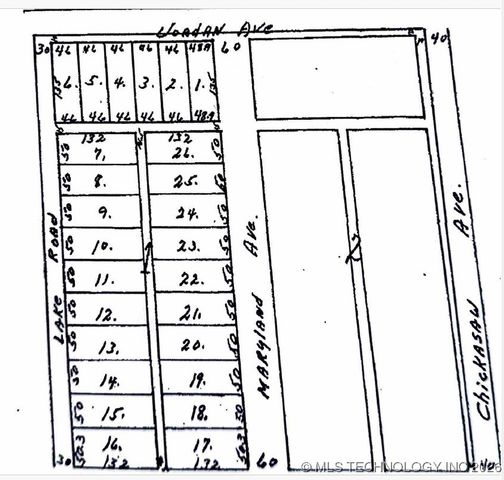 Jordan Ave
30 46 46 46 46 46 48.9 60 40
135 6. 5. 4. 3. 2. 1. 135
46 46 46 46 46 48.9
132 132
50 7. 26. 50
50 8. 25. 50
50 9. 24. 50
50 10. 23. 50
50 11. 22. 50
50 12. 21. 50
50 13. 20. 50
50 14. 19. 50
50 15. 18. 50
50.3 16. 17. 50.3
30 132 132 60
1
2
LAKE ROAD
MARYLAND AVE.
CHICKASAW AVE.
© MLS TECHNOLOGY, INC 2026